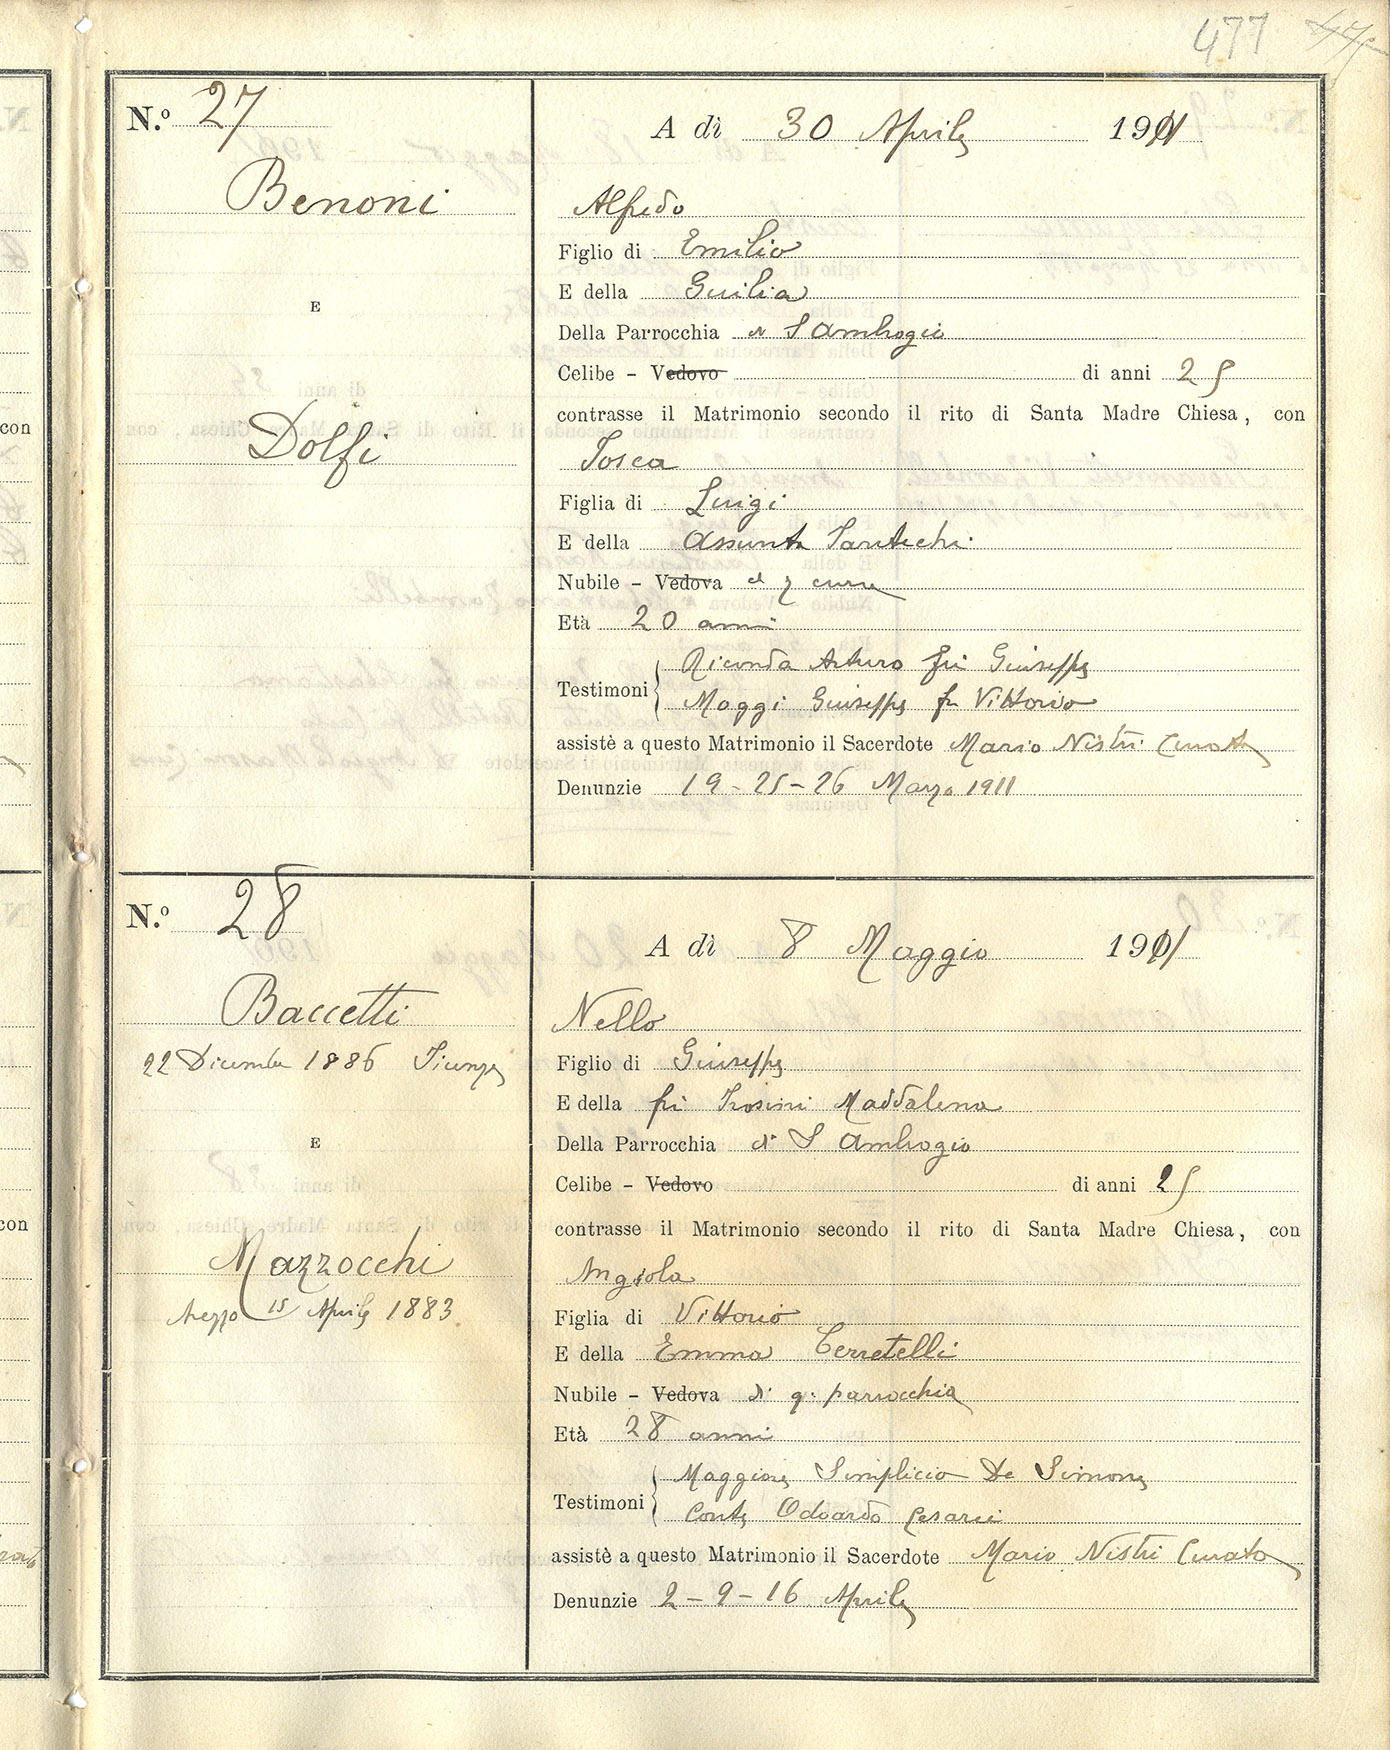 477
N.º 27
A dì 30 Aprile 1911
Benoni
Alfredo
Figlio di Emilio
E della Giulia
E
Della Parrocchia di S Ambrogio
Celibe - Vedovo di anni 25
contrasse il Matrimonio secondo il rito di Santa Madre Chiesa, con
Dolfi
Tosca
Figlia di Luigi
E della Assunta
Nubile - Vedova di q cura
Età 20 anni
Testimoni Arturo fu Giuseppe
Maggi Giuseppe fu Vittorio
assistè a questo Matrimonio il Sacerdote Mario Nistri Curato
Denunzie 19 - 25 - 26 Marzo 1911
con
N.º 28
A dì 8 Maggio 1911
Baccetti
Nello
22 Dicembre 1886 Firenze
Figlio di Giuseppe
E della fu Maddalena
E
Della Parrocchia di S Ambrogio
Celibe - Vedovo di anni 25
contrasse il Matrimonio secondo il rito di Santa Madre Chiesa, con
Mazzocchi
Angiola
Arezzo 15 Aprile 1883
Figlia di Vittorio
E della Emma Cerretelli
Nubile - Vedova di q. parrocchia
Età 28 anni
Testimoni Maggiore Simplicio De Simone
Conte Odoardo
assistè a questo Matrimonio il Sacerdote Mario Nistri Curato
Denunzie 2 - 9 - 16 Aprile
con